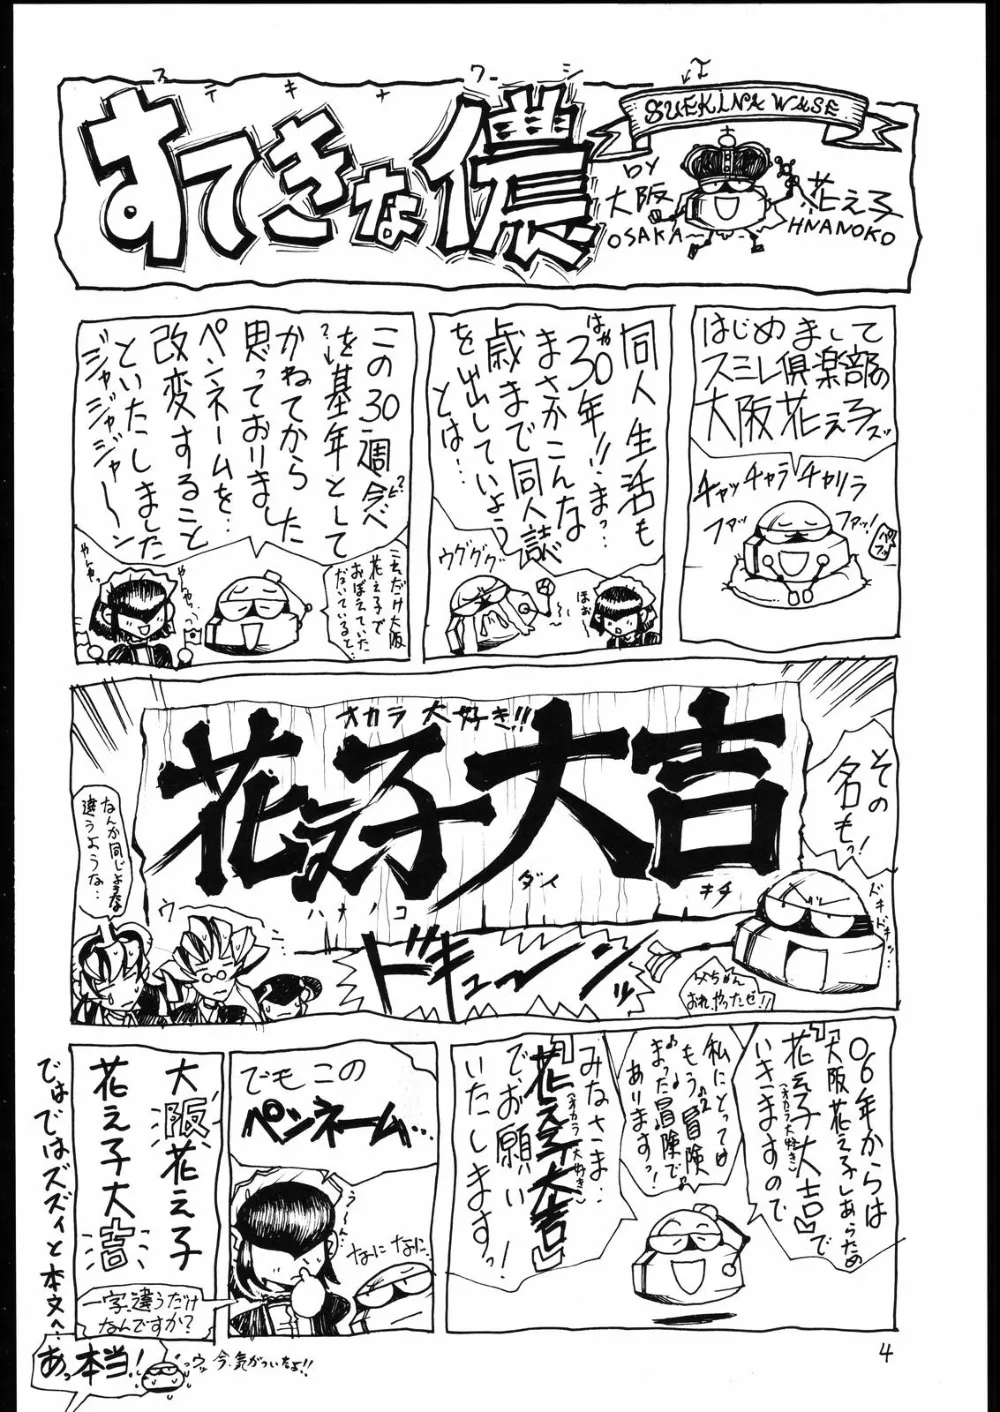 ステキナワーシ
すてきな儂
↙エ
SUEKINA WASE
BY
大阪
花え子
OSAKA〜
HNANOKO
はじめまして
スミレ倶楽部の
大阪花え子ズッ
チャッチャラチャリラ
ファッ
ファッ!
同人生活も
はや
30年!!まっ…
まさかこんな
歳まで同人誌
を出していよう
とは…
ウググググ
ほぉ
この30週今べ
?
を基年として
?
かねてから
思っておりました
ペンネームを…
改変すること
といたしました
ジャジャジャジャーン
これだけ大阪
花え子で
おぼえていた
だいていると…
やんやっ
やんやっ
その
名もっ!
オカラ大好き!!
花え子大吉
ハナノコ
ダイ
キチ
なんか同じような
違うような…
ウー
ドキュ〜ンッ
ドキドキッ…
父ちゃん
おれ、やったぜ!!
06年からは
『大阪花え子』あらため
『花え子大吉』で
(オカラ大好き)
いきますので
私にとっては
もうの冒険
まった冒険で
ありますっ!
みなさま…
『花え子大吉』
(オカラ大好き)
でお願い
いたしますっ!
でもこの
ペンネーム…
う〜ん
なになに
大阪花え子
花え子大吉
一字、違うだけ
なんですか?
ではではズズィと本文へ…
あっ本当!
ウッ
今、気がついたよ!!
4